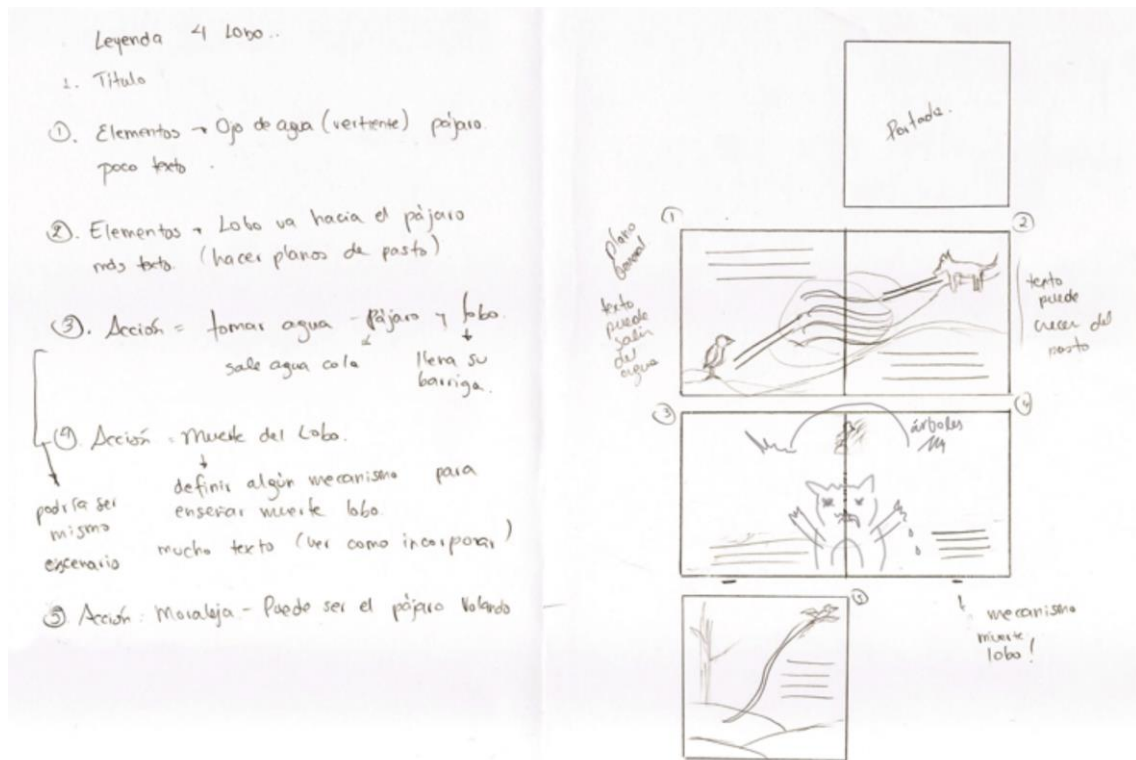 Leyenda 4 Lobo..
1. Título
①. Elementos → Ojo de agua (vertiente) pájaro.
poco texto.
②. Elementos → Lobo va hacia el pájaro
más texto. (hacer planos de pasto)
③. Acción = tomar agua - pájaro y lobo.
sale agua cola
llena su
barriga.
④. Acción = Muerte del Lobo.
definir algún mecanismo para
enseñar muerte lobo.
mucho texto (ver como incorporar)
podría ser
mismo
escenario
⑤ Acción: Moraleja - Puede ser el pájaro volando
Portada.
①
②
plano
texto
puede
salir
del
agua
texto
puede
crecer del
pasto
③
④
árboles
mecanismo
muerte
lobo!
⑤